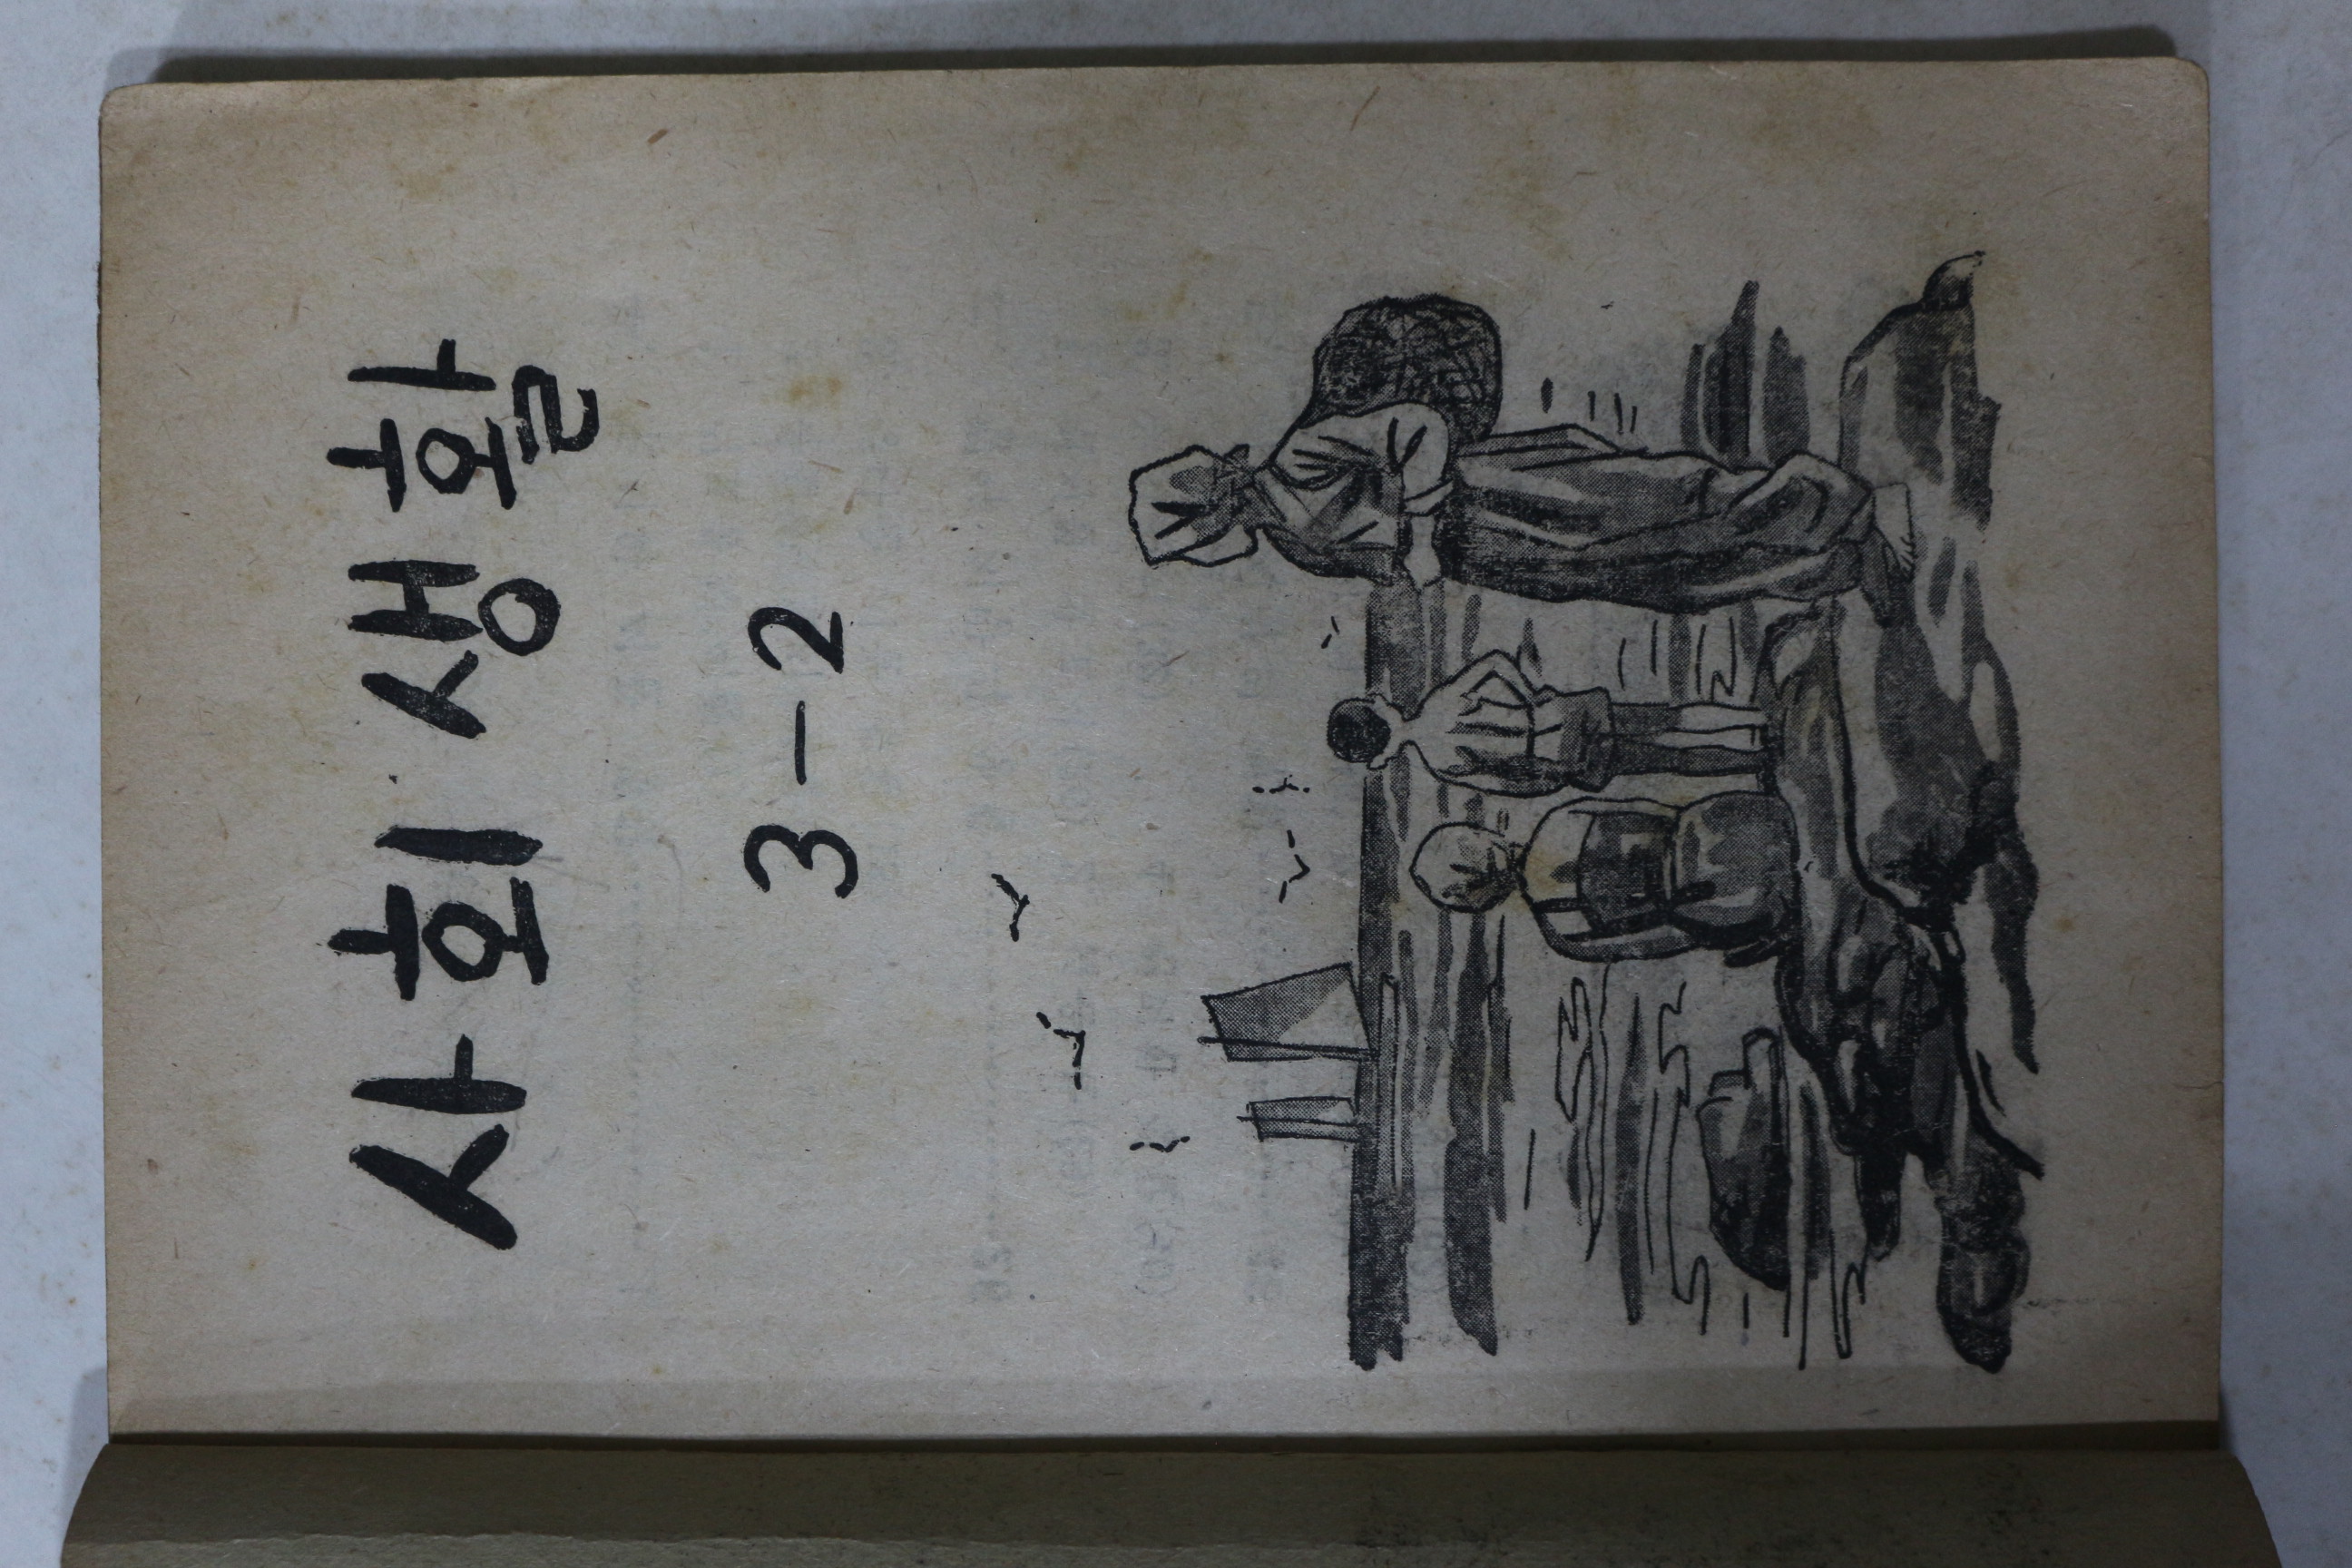 사회 생활
3-2